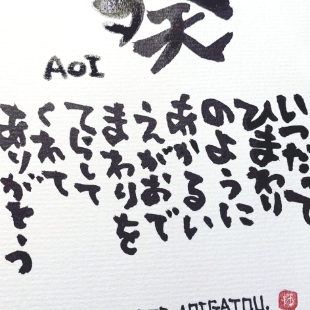 葵
AOI
いつだって
ひまわり
のように
あかるい
えがおで
まわりを
てらして
くれて
ありがとう
ARIGATOU.